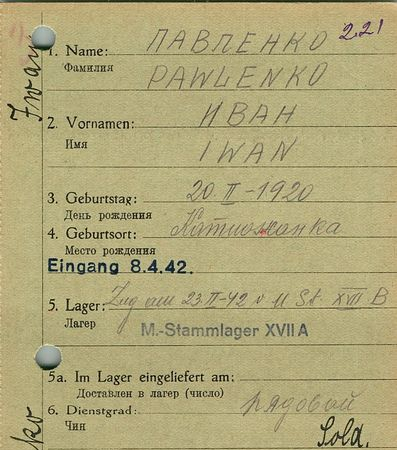 221
Iwan
1. Name: ПАВЛЕНКО
Фамилия
PAWLENKO
2. Vornamen: ИВАН
Имя
IWAN
3. Geburtstag: 20 II-1920
День рождения
4. Geburtsort: Катюжанка
Место рождения
Eingang 8.4.42.
5. Lager: Zug am 23 II-42 v M St. XVII B
Лагер
M.-Stammlager XVII A
5a. Im Lager eingeliefert am:
Доставлен в лагер (число)
6. Dienstgrad: рядовый
Чин
Sold.
ko